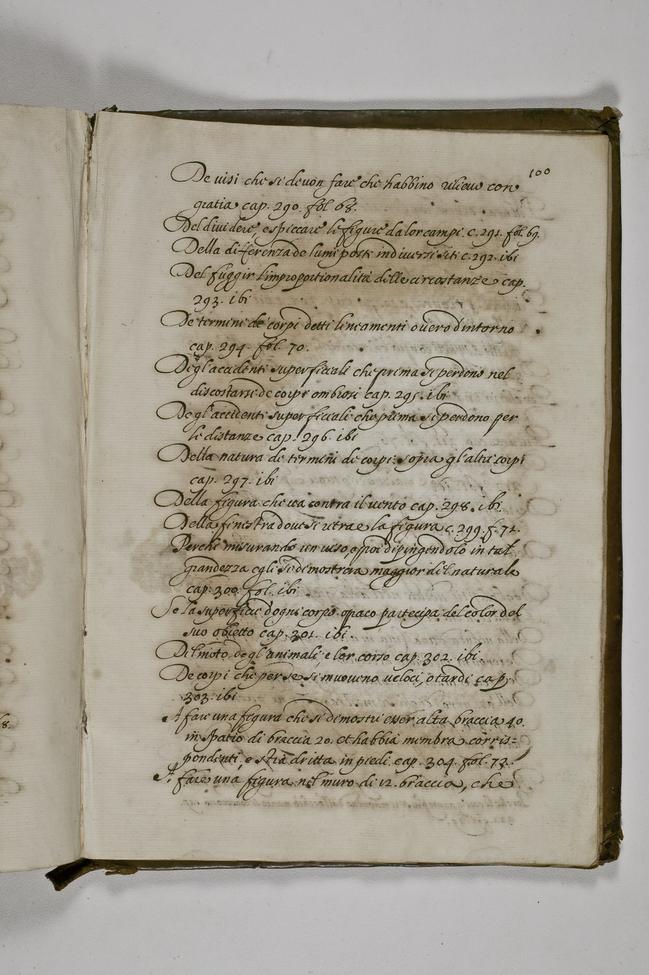 100
De visi che si devon fare che habbino rilievo con
gratia cap. 290. fol 68.
Del dividere, e spiccare le figure da lor campi. c. 291. fol. 69.
Della differenza de lumi posti in diversi siti c. 292. ibi
Del fuggir l'improportionalità delle circostanze cap.
293. ibi
De termini de corpi detti lineamenti overo d'intorno
cap. 294. fol. 70.
Degl'accidenti superficiali che prima si perdono nel
discostarsi de corpi ombrosi cap. 295. ibi
Degl'accidenti superficiali che prima si perdono per
le distanze cap. 296. ibi
Della natura de termini de corpi sopra gl'altri corpi
cap. 297. ibi
Della figura che va contra il vento cap. 298. ibi
Della finestra dove si ritrae la figura c. 299. f. 71.
Perche misurando un viso, e poi dipingendolo in tal
grandezza egli si dimostrera maggior di il naturale
cap. 300. fol. ibi
Se la superficie d'ogni corpo opaco partecipa del color del
suo obietto cap. 301. ibi.
Del moto degl'animali, e lor corso cap. 302. ibi
De corpi che per se si muoveno veloci, o tardi cap.
303. ibi
A fare una figura che si dimostri esser alta braccia 40.
in spatio di braccia 20. et habbia membra corris-
pondenti, e stia dritta in piedi. cap. 304. fol. 72.
A fare una figura nel muro di 12. braccia, che
8.